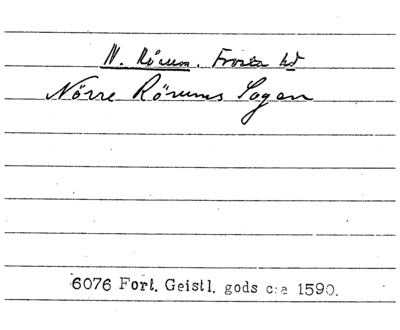 N. Rörum. Frosta hd
Nörre Rörums Sogen
6076 Fort. Geistl. gods c:a 1590.